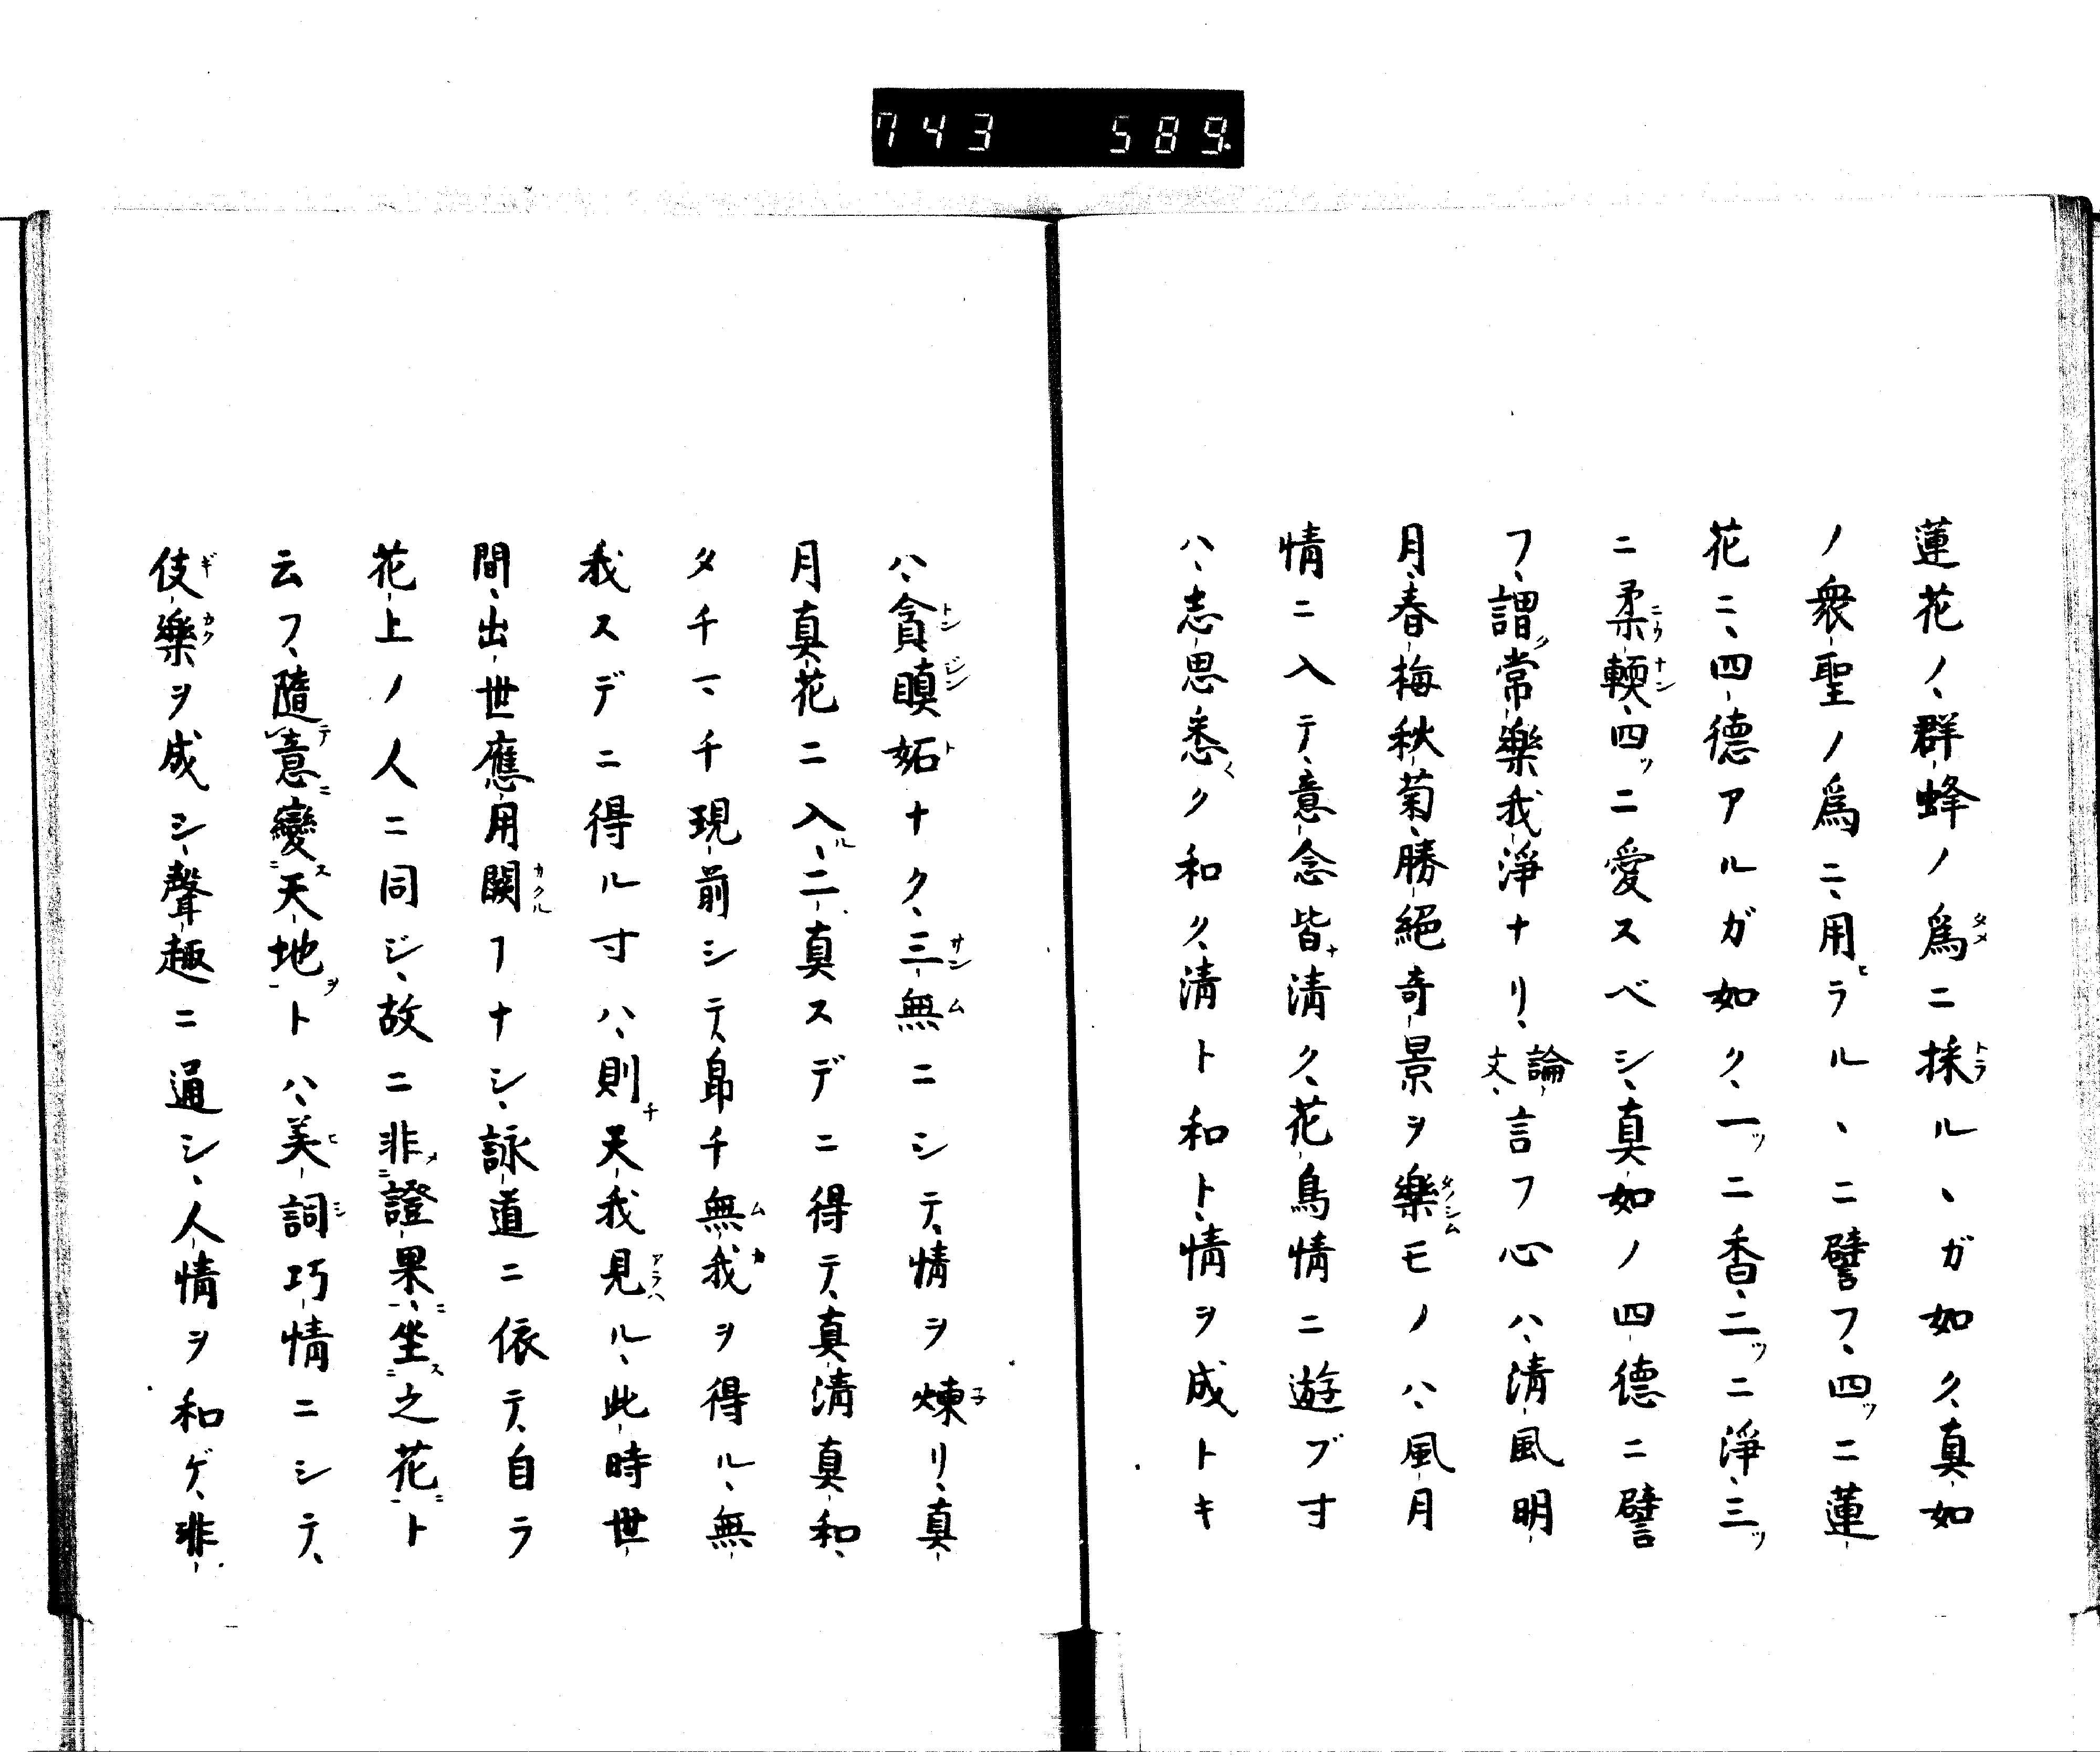 743 589.
蓮花ノ、群蜂ノ為ニ採ル、ガ如ク、真如
ノ衆聖ノ為ニ、用ラル、ニ譬フ、四ツニ蓮
花ニ、四德アルガ如ク、一ツニ香、二ツニ淨、三ツ
ニ柔輭、四ツニ愛スベシ、真如ノ四德ニ譬
フ、謂ク常樂我淨ナリ、論文、言フ心ハ、清風明
月、春梅秋菊、勝絕奇景ヲ樂モノハ、風月
情ニ入テ、意念皆清ク、花鳥情ニ遊ブ寸
ハ、志思悉ク和ク、清ト和ト、情ヲ成トキ
ハ、貪瞋妬ナク、三無ニシテ、情ヲ煉リ、真
月真花ニ入ル、二真スデニ得テ、真清真和、
タチマチ現前シテ、皈チ無我ヲ得ル、無
我スデニ得ル寸ハ、則チ天我見ル、此時世
間、出世應用闕フナシ、詠道ニ依テ、自ラ
花上ノ人ニ同ジ、故ニ非證果、坐之花ト
云フ、隨意變天地トハ、美詞巧情ニシテ、
伎樂ヲ成シ、聲趣ニ通シ、人情ヲ和ゲ、非